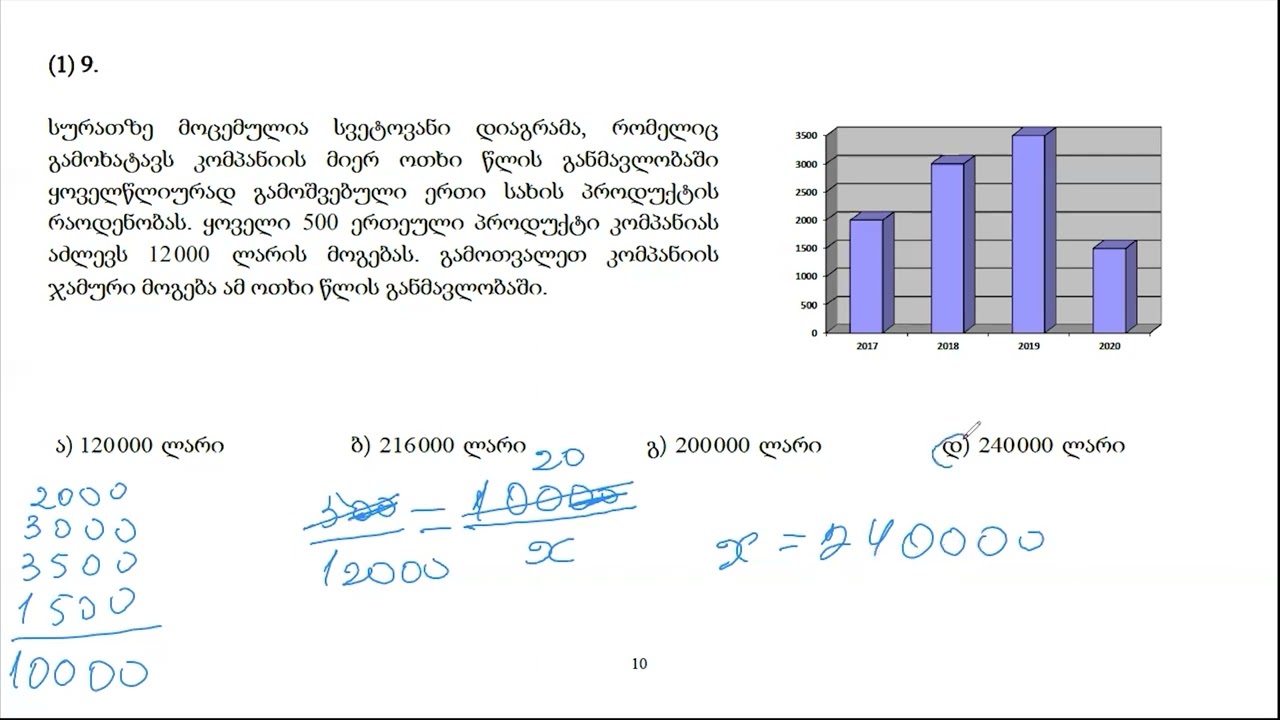 (1) 9.
სურათზე მოცემულია სვეტოვანი დიაგრამა, რომელიც
გამოხატავს კომპანიის მიერ ოთხი წლის განმავლობაში
ყოველწლიურად გამოშვებული ერთი სახის პროდუქტის
რაოდენობას. ყოველი 500 ერთეული პროდუქტი კომპანიას
აძლევს 12000 ლარის მოგებას. გამოთვალეთ კომპანიის
ჯამური მოგება ამ ოთხი წლის განმავლობაში.
3500
3000
2500
2000
1500
1000
500
0
2017 2018 2019 2020
ა) 120000 ლარი ბ) 216000 ლარი გ) 200000 ლარი დ) 240000 ლარი
2000
3000
3500
1500
10000
20
500 = 10000
12000 x
x = 240000
10